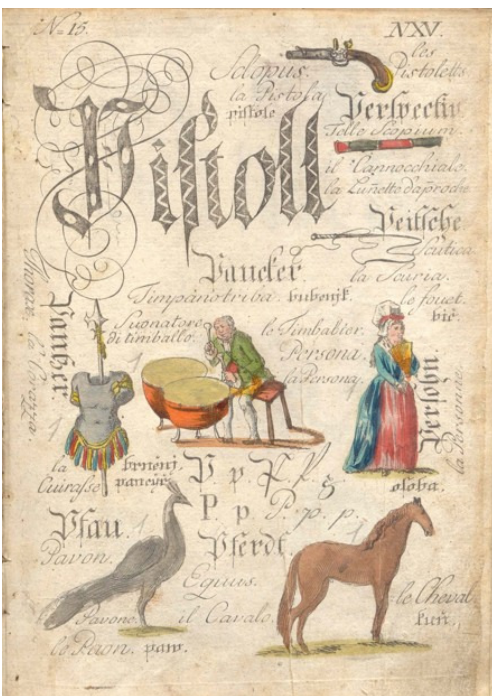 N. 15.
NXV.
Pistoll
Sclopus.
la Pistola
pistole
les
Pistoletts
Perspectiv
Tele Scopium.
il Cannocchiale.
la Lunette daproche
Peitsche
Scutica
la Scuria.
le fouet.
bič.
Paucker
Timpanotriba. bubenjk.
Suonatore
di timballo.
le Timbalier.
Persona.
la Persona.
Persohn.
la Personne.
osoba.
Pantzer.
Thorax. la Corazza.
la
Cuirasse
brněnj
pancyř
P p. P. P. g
P p P. p. p.
Pfau.
Pavon.
Pavone.
le Paon. paw.
Pferdt.
Equus.
il Cavalo.
le Cheval
kůň.